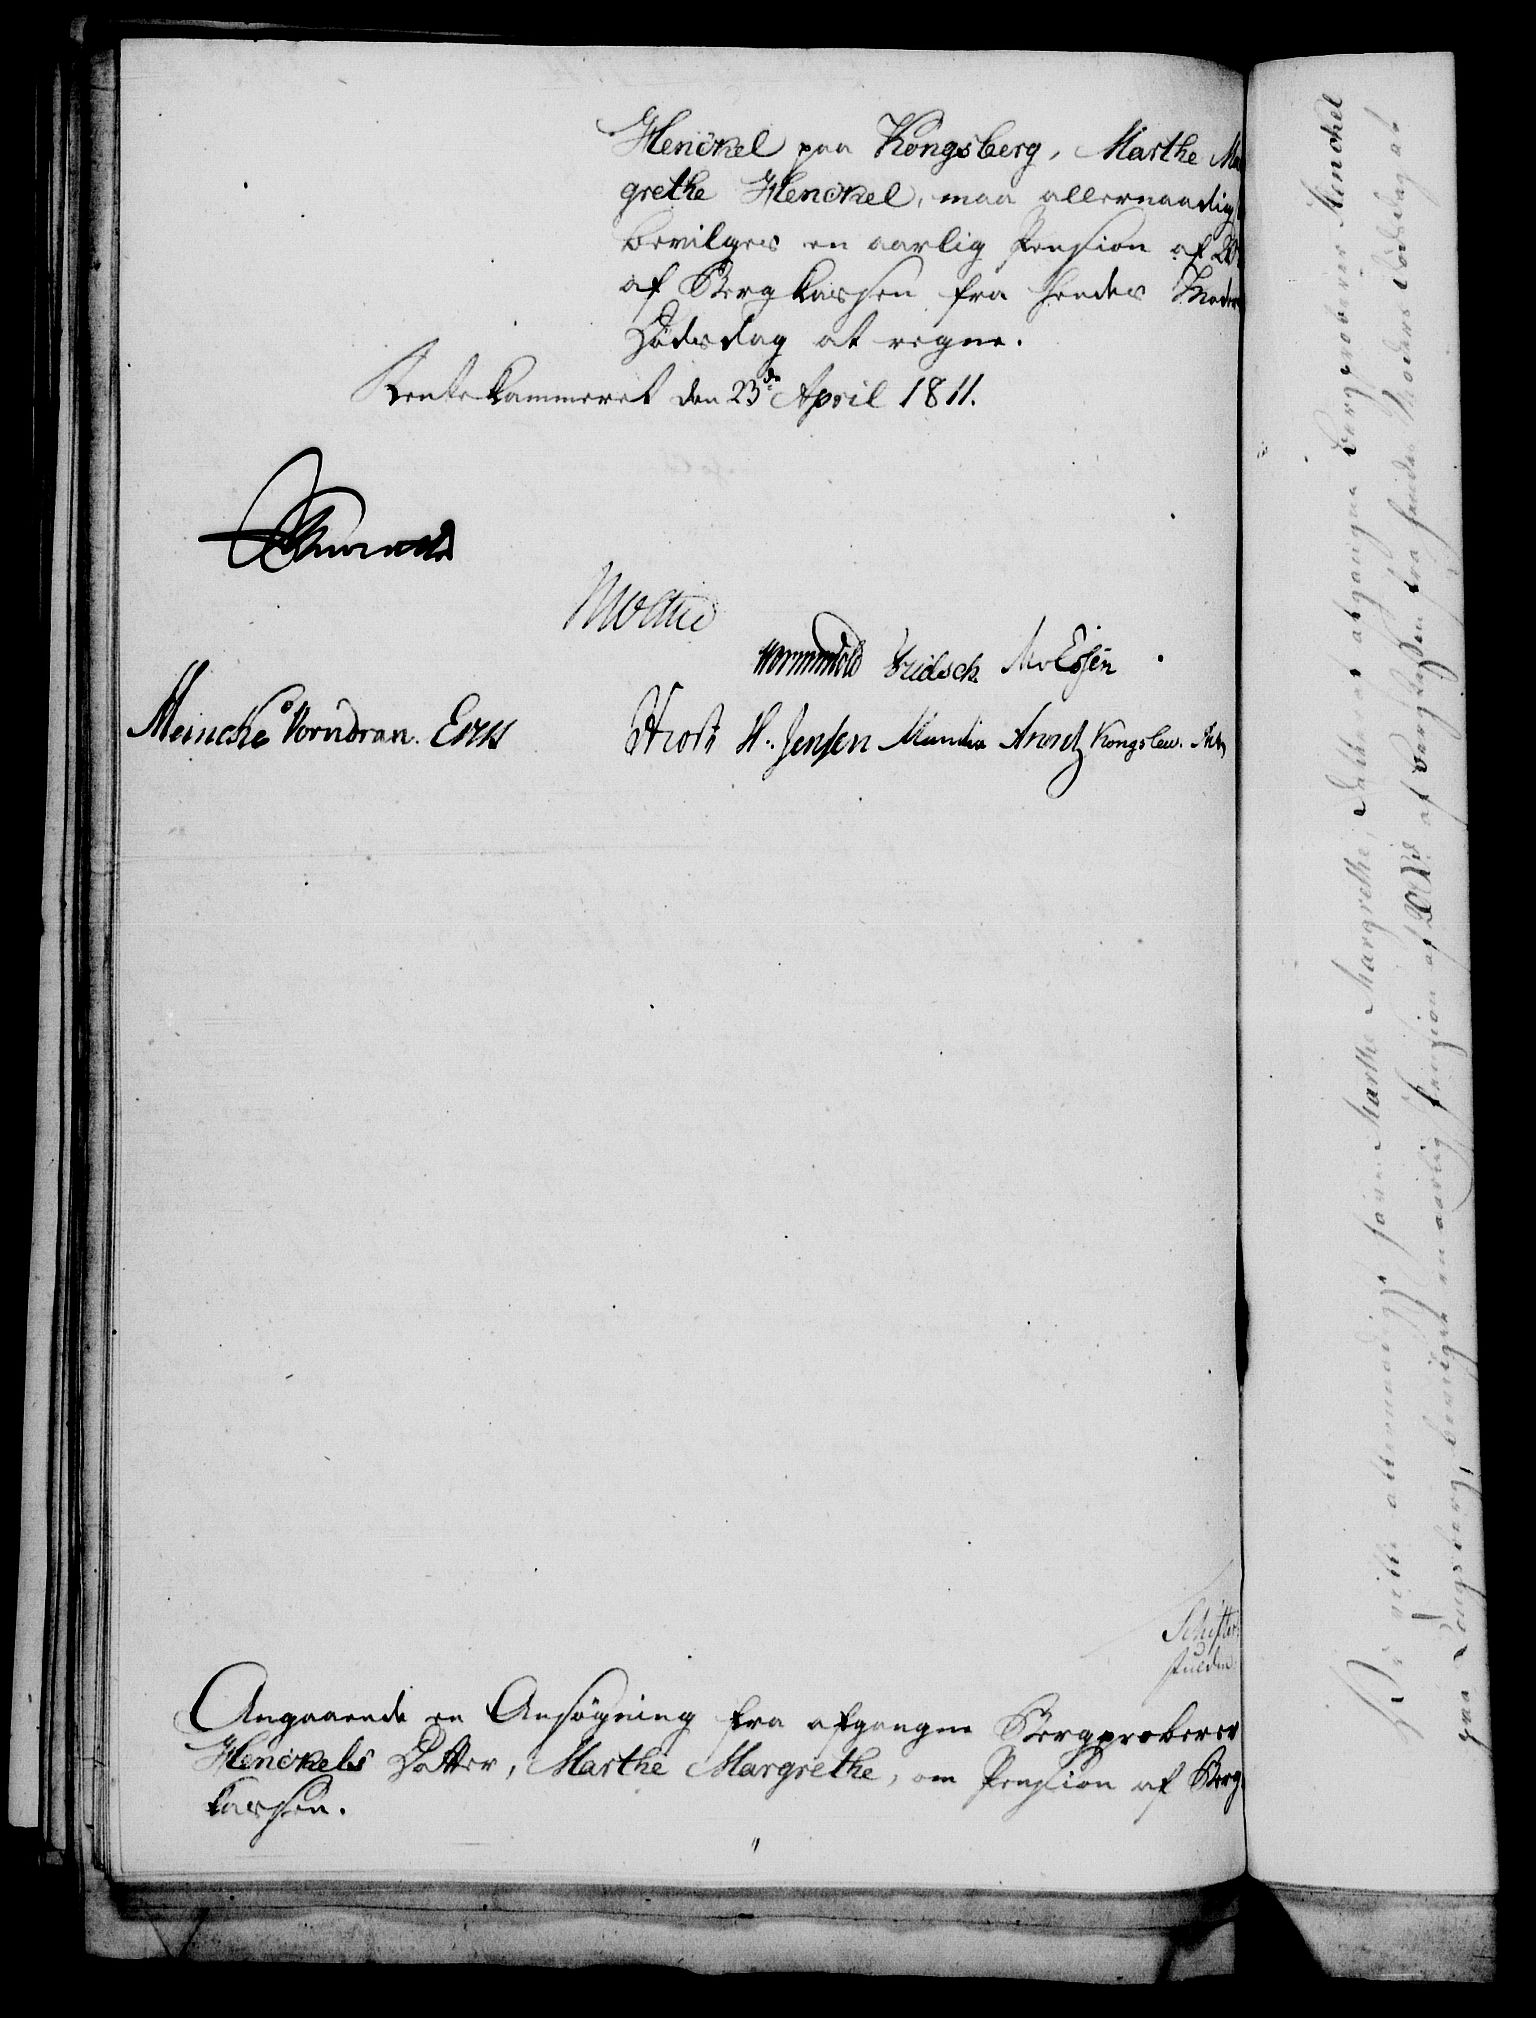 Henckel paa Kongsberg, Marthe Mar
grethe Henckel, maa allernaadigst
bevilges en aarlig Pension af 20
af Bergkassen fra hendes Moders
Dødsdag at regne.
Rentekammeret den 23de April 1811.
Moltke
Wormskiold
Meincke Vorndran.
H. Jensen
Angaaende en Ansøgning fra afgangne Bergproberer
Henckels Datter, Marthe Margrethe, om Pension af Berg
kassen.
Vi ville allernaadigst have Marthe Margrethe, Datter af afgangne Bergproberer Henckel
paa Kongsberg, bevilget en aarlig Pension af 20 af Bergkassen fra hendes Moders Dødsdag at